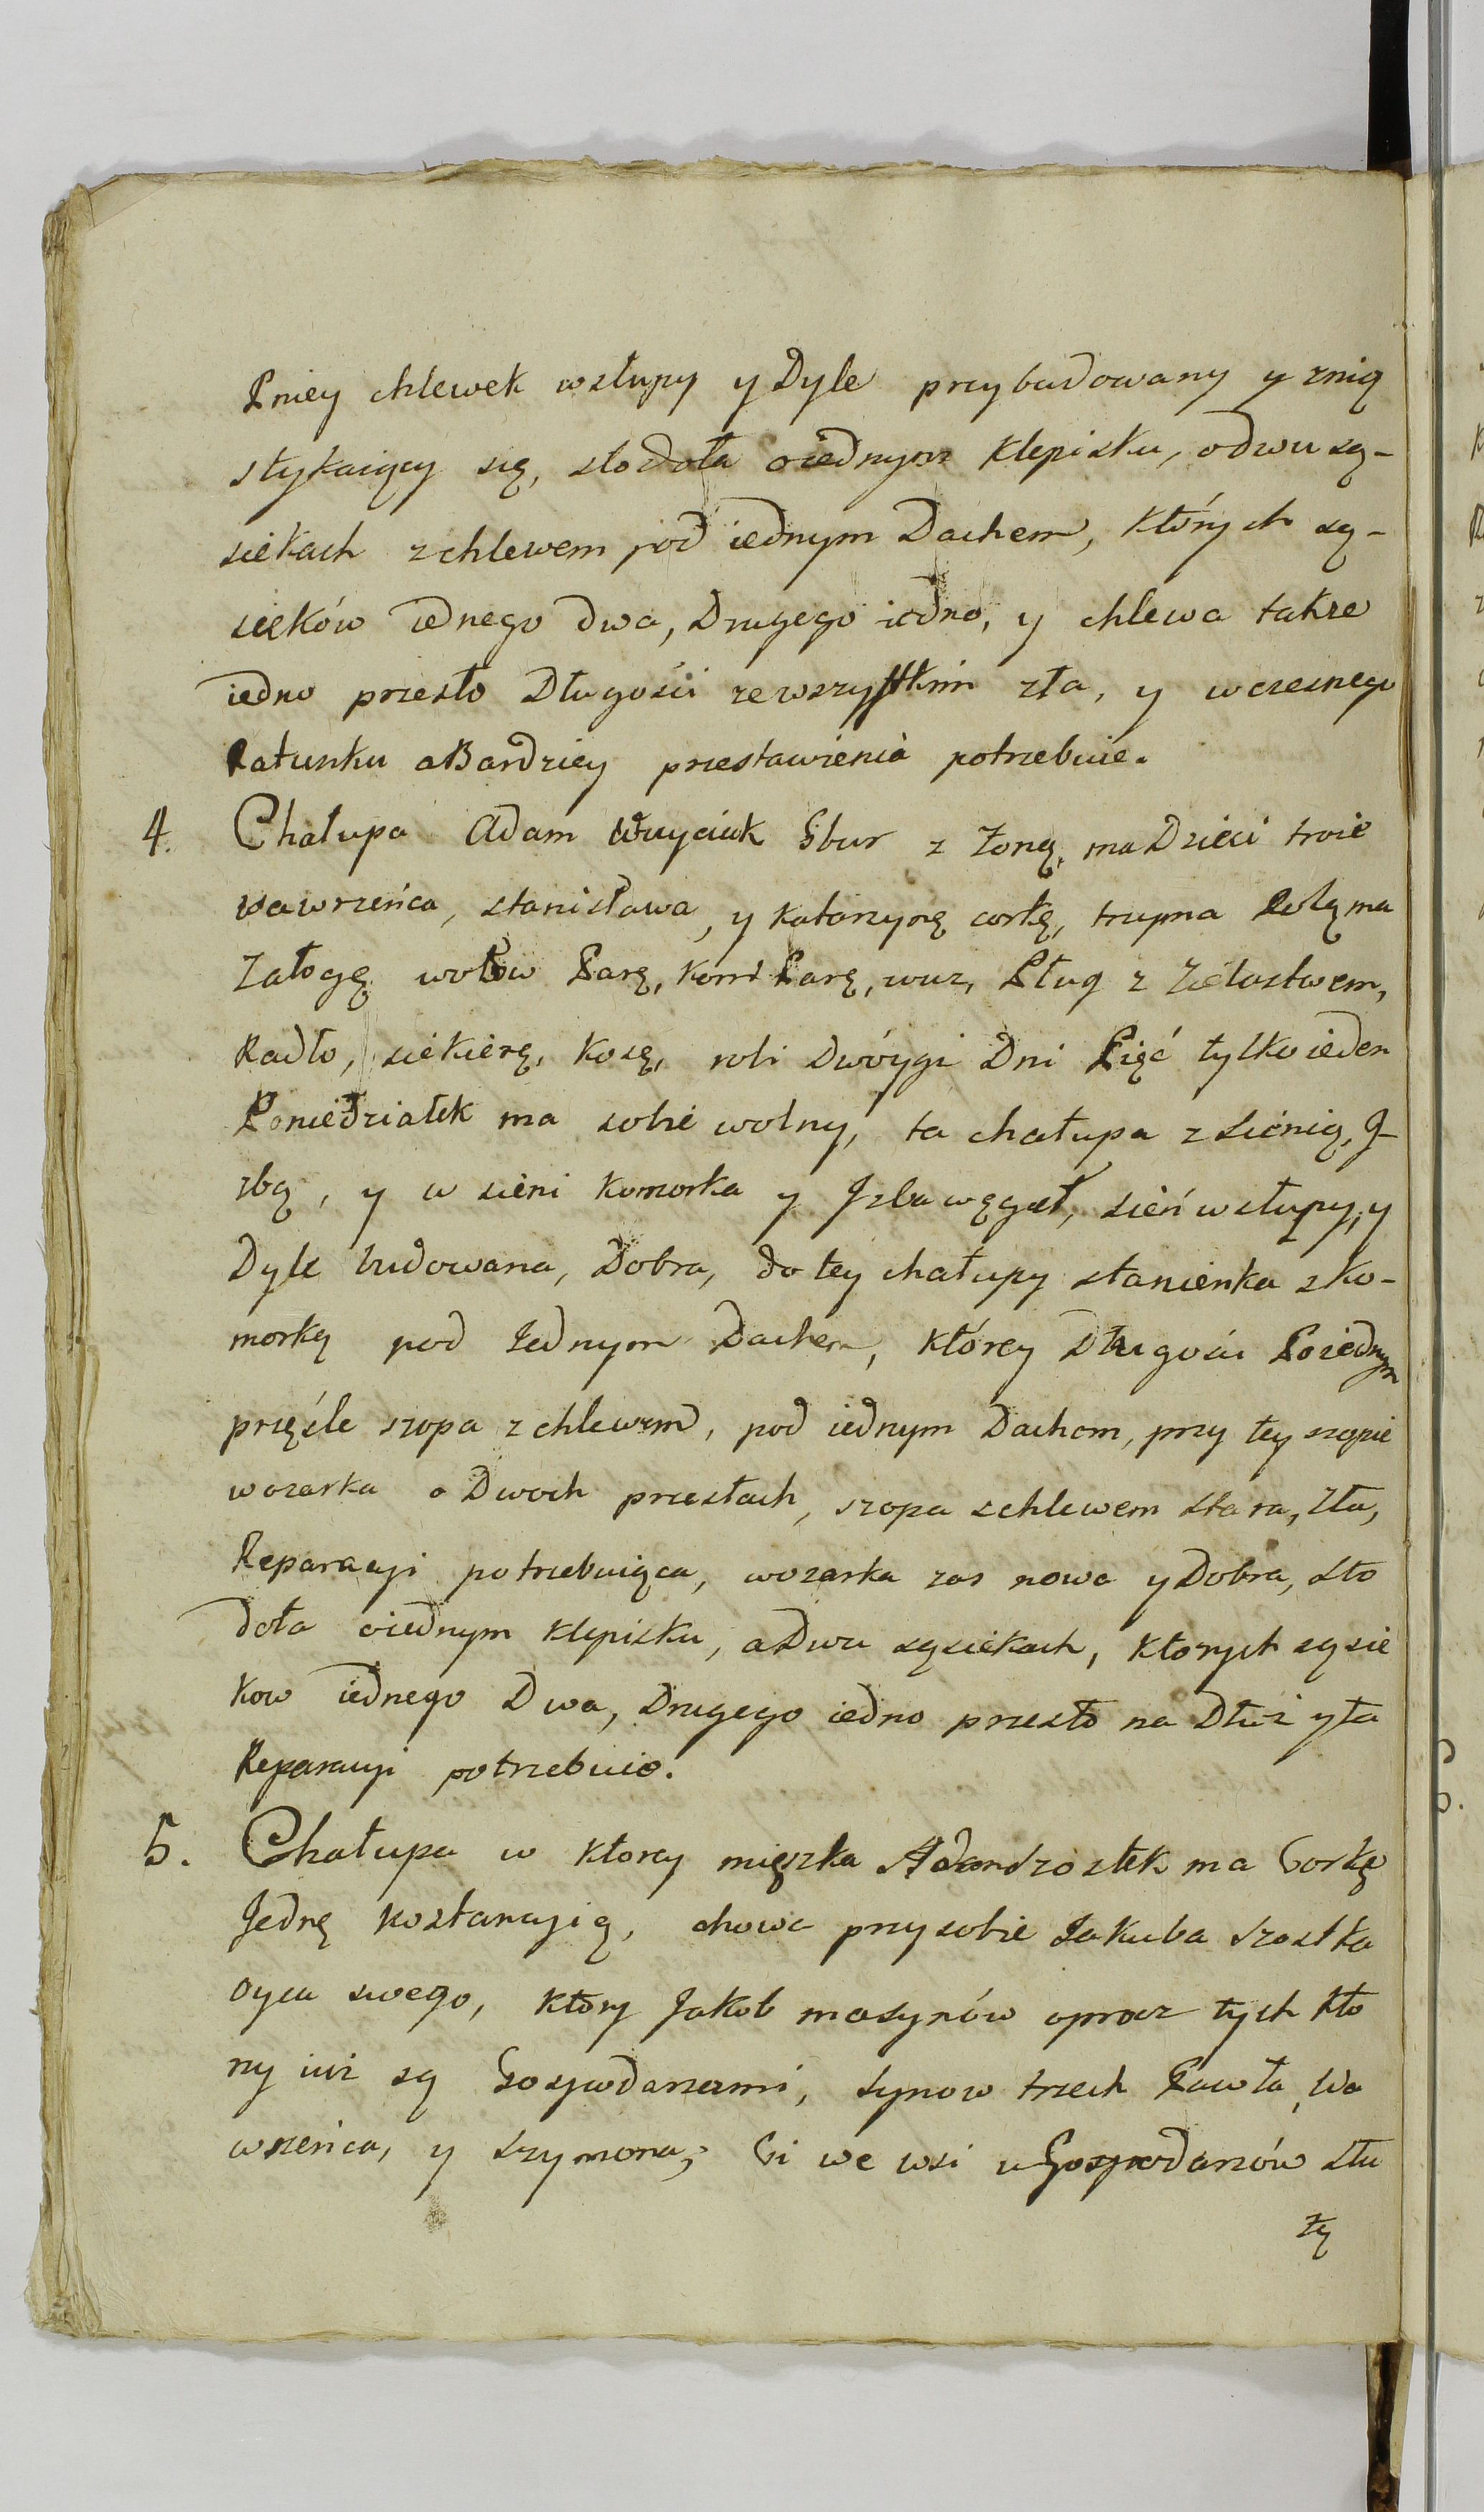 Pniey chlewek wsłupy y Dyle przybudowany y znią
stykaiący się, stodoła oiednym klepisku, odwu są-
siekach zchlewem pod iednym Dachem, których są-
sieków iednego dwa, Drugego iedno, y chlewa takze
iedno przesło Długości zewszystkim zła, y wczesnego
Ratunku aBardziey przestawienia potrzebuie.
4. Chałupa Adam Woyciak Gbur z Zoną, ma Dzieci troie
Wawrzeńca, Stanisława, y Katarzynę corkę, trzyma Rolą ma
Załogę wołow Parę, koni Parę, wuz, Pług z Zielastwem,
Radło, siekierę, kosę, robi Dwóygi Dni Pięć tylko ieden
Poniedziałek ma sobie wolny, ta chałupa z sienią, J-
zbą, y w sieni komorka y Jzba węgieł, sień wsłupy, y
Dyle budowana, Dobra, do tey chałupy stanienka zko-
morką pod Jednym Dachem, którey Długości Poiednym
przęśle szopa zchlewem, pod iednym Dachem, przy tey szopie
wozarka o Dwoch przesłach, szopa zchlewem stara, zła,
Reparacyi potrzebuiąca, wozarka zas nowa y Dobra, sto
doła oiednym klepisku, a Dwu sąsiekach, ktorych sąsie
kow iednego Dwa, Drugego iedno przesło na Dłuż y ta
Reparacyi potrzebuie.
5. Chałupa w ktorey mięszka Adam Szostek ma Corkę
Jednę Kostancyią, chowa przysobie Jakuba Szostka
oyca swego, ktory Jakob masynów oprocz tych kto
ry iuż są Gospodarzami, synow trzech Pawła, Wa
wrzeńca, y Szymona; Ci we wsi u Gospodarzów słu
żą